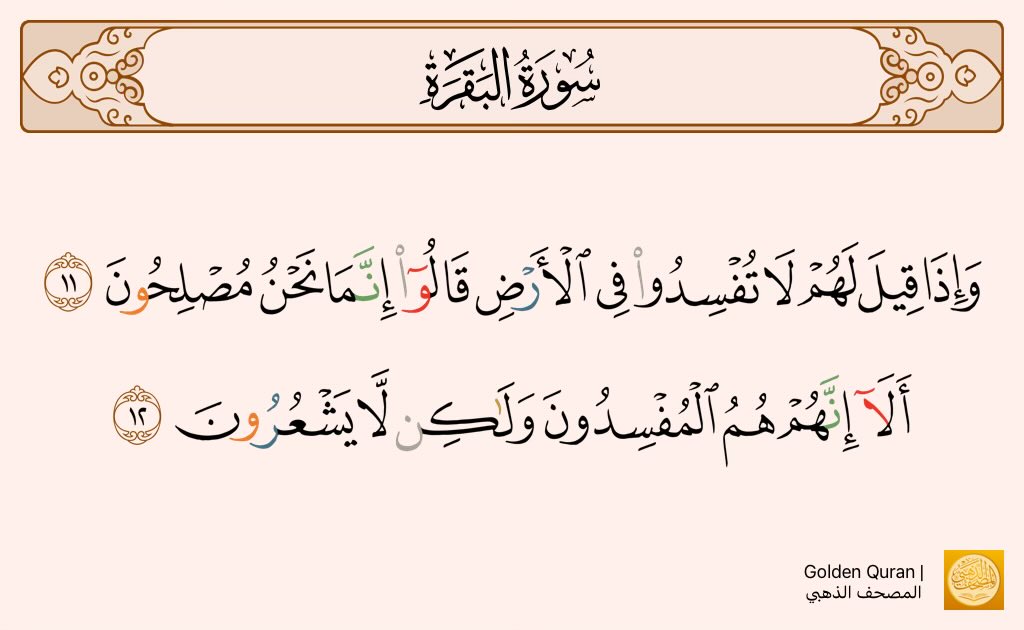 سُورَةُ البَقَرَةِ
وَإِذَا قِيلَ لَهُمْ لَا تُفْسِدُوا۟ فِى ٱلْأَرْضِ قَالُوٓا۟ إِنَّمَا نَحْنُ مُصْلِحُونَ ١١
أَلَآ إِنَّهُمْ هُمُ ٱلْمُفْسِدُونَ وَلَـٰكِن لَّا يَشْعُرُونَ ١٢
Golden Quran |
المصحف الذهبي
المصحف الذهبي